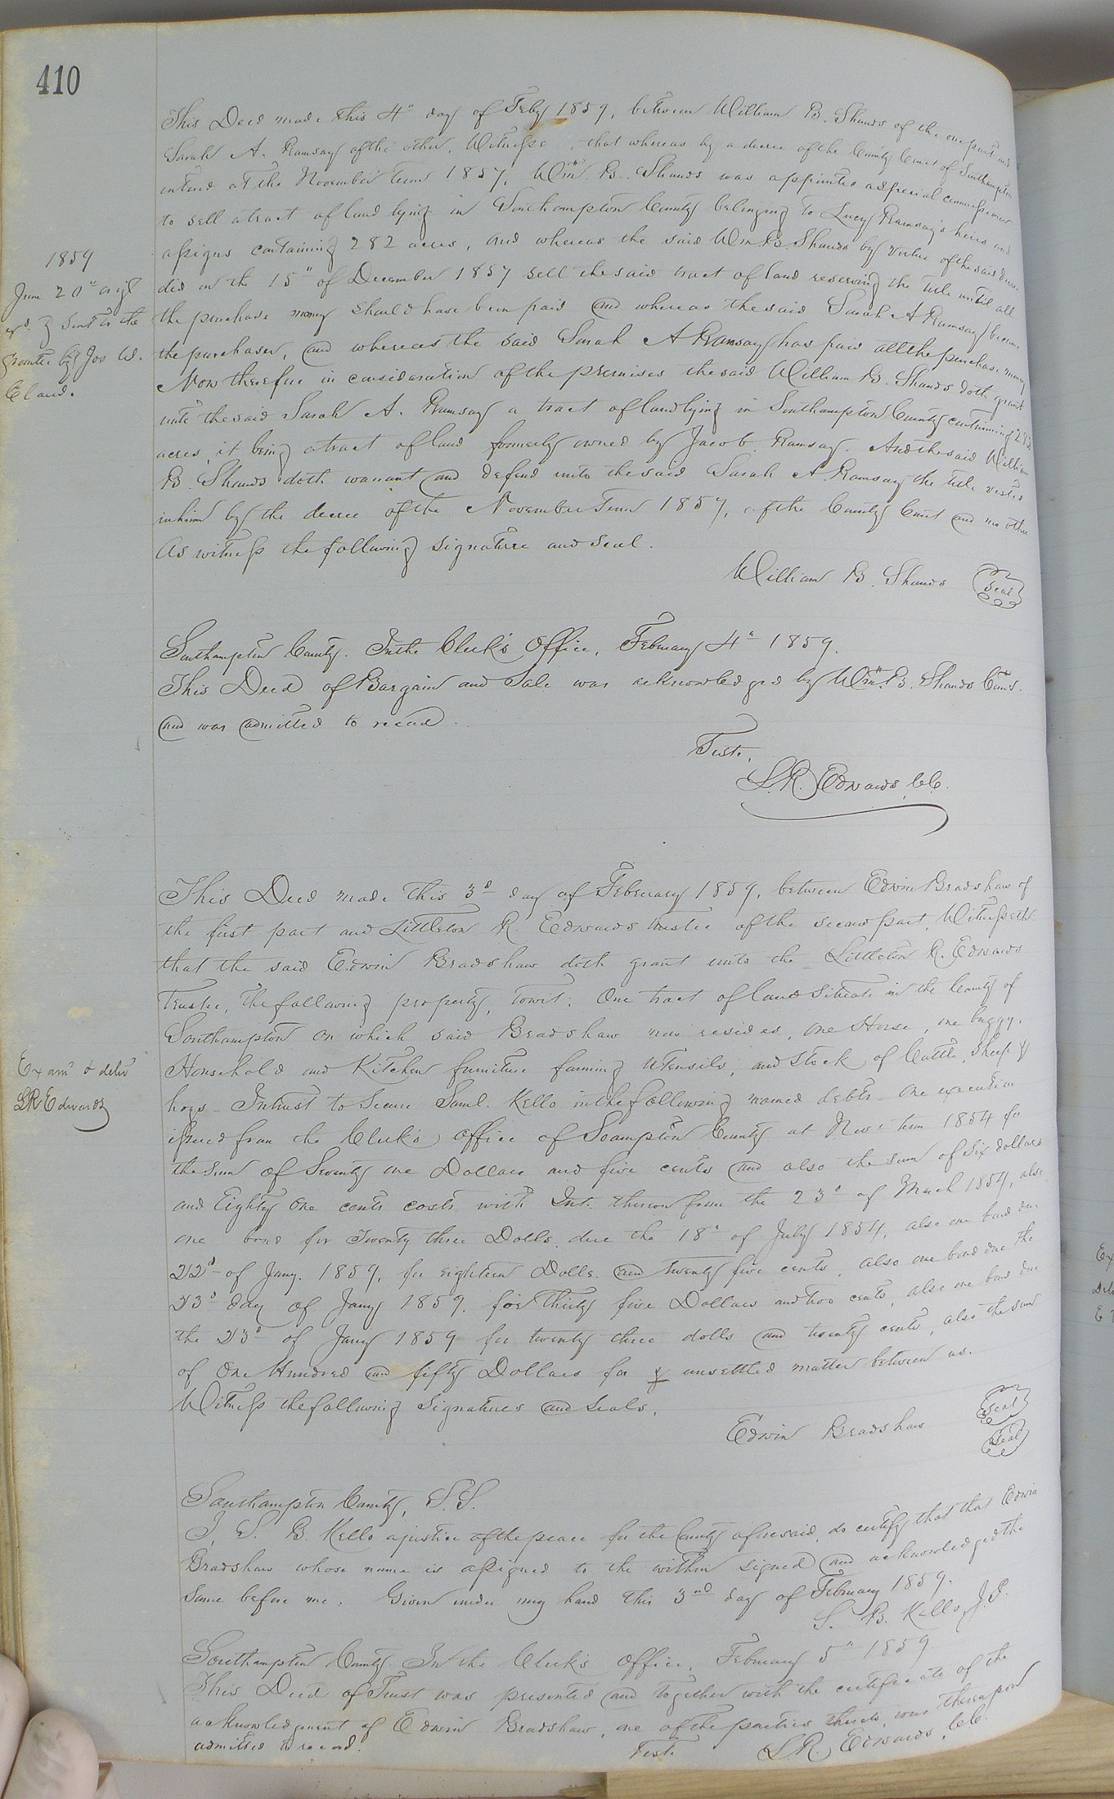 410
This Deed made this 4th day of Feby 1859, between William B. Shands of the one part and
Sarah A. Ramsay of the other, Witnesseth, that whereas by a decree of the County Court of Southampton
entered at the November term 1857, Wm. B. Shands was appointed a special commissioner
to sell a tract of land lying in Southampton County belonging to Lucy Ramsay's heirs and
assigns containing 282 acres, and whereas the said Wm B. Shands by virtue of the said decree
did on the 15th of December 1857 sell the said tract of land reserving the title until all
the purchase money should have been paid and whereas the said Sarah A Ramsay became
the purchaser, and whereas the said Sarah A Ramsay has paid all the purchase money
Now therefore in consideration of the premises the said William B. Shands doth grant
unto the said Sarah A. Ramsay a tract of land lying in Southampton County containing 282
acres, it being a tract of land formerly owned by Jacob Ramsay. And the said William
B. Shands doth warrant and defend unto the said Sarah A Ramsay the title vested
in him by the decree of the November Term 1857, of the County Court and no other
As witness the following signature and seal.
William B. Shands Seal
1859
June 20th
& sent to the
Grantee by Jos W.
Claud.
Southampton County. In the Clerk's Office, February 4th 1859.
This Deed of Bargain and Sale was acknowledged by Wm. B. Shands Comr.
and was admitted to record.
Teste,
L. R. Edwards, C.C.
This Deed made this 3d day of February 1859, between Edwin Bradshaw of
the first part and Littleton R. Edwards trustee of the second part, Witnesseth
that the said Edwin Bradshaw doth grant unto the Littleton R. Edwards
Trustee, the following property, towit: One tract of land situate in the County of
Southampton on which said Bradshaw now resides, one Horse, one buggy,
Household and Kitchen furniture farming utensils, and Stock of Cattle, Sheep &
hogs. In trust to secure Saml. Kello in the following named debts. One execution
issued from the Clerk's office of Soampton County at Nov: term 1854 for
the sum of Seventy one Dollars and five cents and also the sum of Six dollars
and Eighty One cents costs with Int. thereon from the 23d of March 1854, also
one bond for Twenty three Dolls. due the 18th of July 1854, also one bond due
22d of Jany. 1859, for eighteen Dolls. and twenty five cents, also one bond due the
23d day of Jany 1859, for thirty five Dollars and two cents, also one bond due
the 23d of Jany 1859 for twenty three dolls and twenty cents, also the sum
of One Hundred and fifty Dollars for & unsettled matter between us.
Witness the following signatures and seals.
Edwin Bradshaw Seal
Seal
Examd & delivd
LR Edwards
Southampton County, S.S.
I, S. B Kello a justice of the peace for the County aforesaid, do certify that that Edwin
Bradshaw whose name is assigned to the within signed and acknowledged the
same before me. Given under my hand this 3rd day of February 1859.
S. B. Kello, J.P.
Southampton County. In the Clerk's Office, February 5th 1859
This Deed of Trust was presented and together with the certificate of the
acknowledgment of Edwin Bradshaw, one of the parties thereto, was thereupon
admitted to record.
Test. L.R. Edwards, C.C.